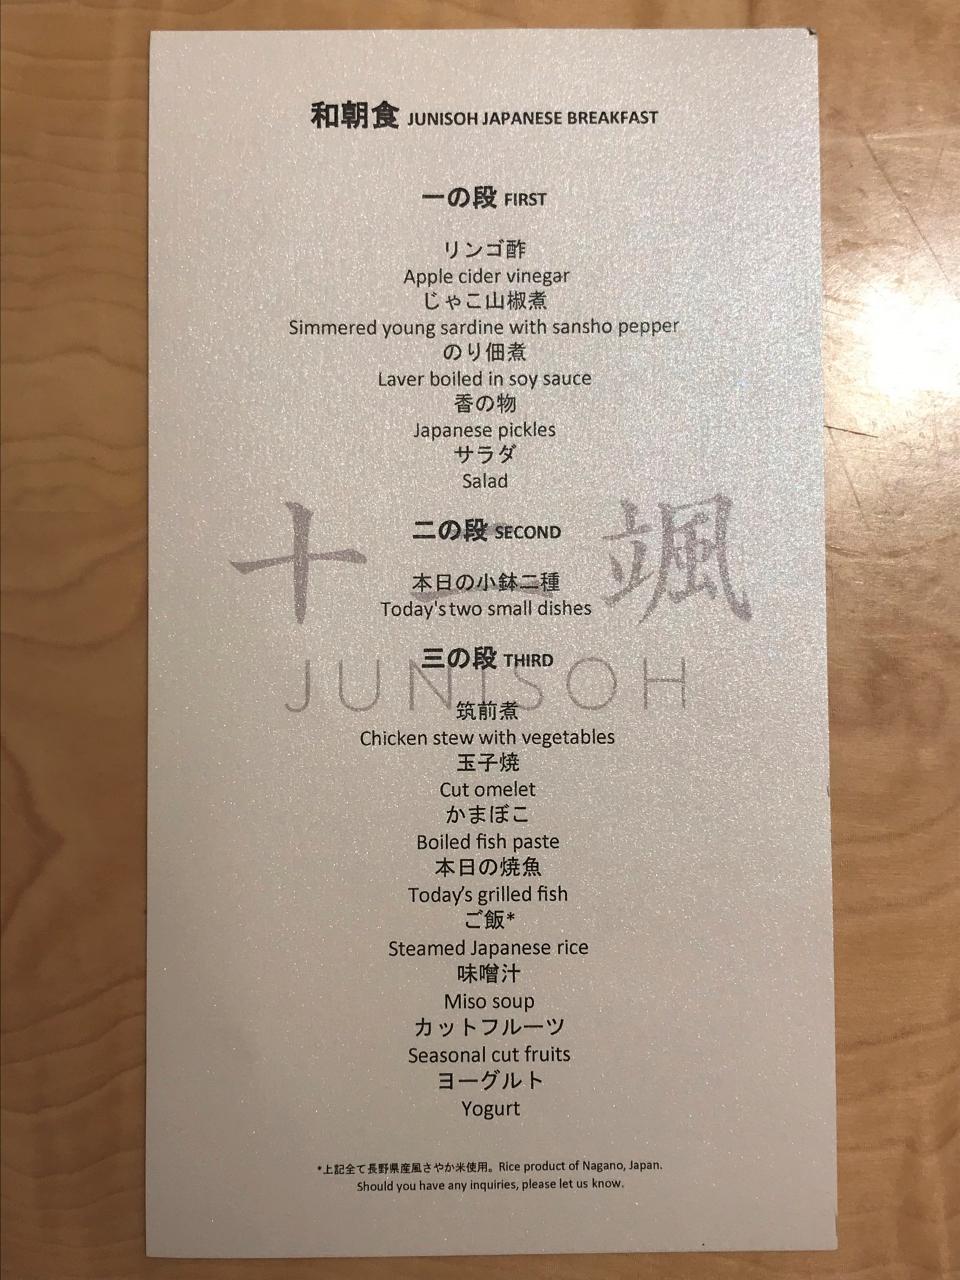 和朝食 JUNISOH JAPANESE BREAKFAST
一の段 FIRST
リンゴ酢
Apple cider vinegar
じゃこ山椒煮
Simmered young sardine with sansho pepper
のり佃煮
Laver boiled in soy sauce
香の物
Japanese pickles
サラダ
Salad
二の段 SECOND
本日の小鉢二種
Today's two small dishes
十二颯
三の段 THIRD
JUNISOH
筑前煮
Chicken stew with vegetables
玉子焼
Cut omelet
かまぼこ
Boiled fish paste
本日の焼魚
Today's grilled fish
ご飯*
Steamed Japanese rice
味噌汁
Miso soup
カットフルーツ
Seasonal cut fruits
ヨーグルト
Yogurt
*上記全て長野県産風さやか米使用。Rice product of Nagano, Japan.
Should you have any inquiries, please let us know.